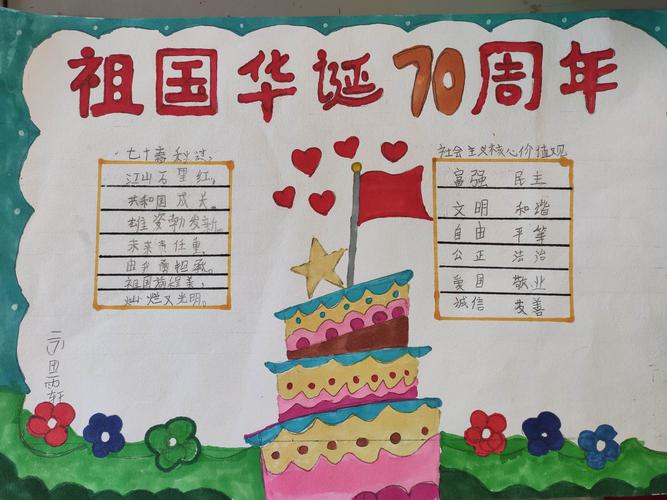 祖国华诞70周年
七十春秋
江山万里红。
共和国成长。
雄姿勃发新。
未来责任重,
由我担承。
祖国前程美,
灿烂又光明。
社会主义核心价值观
富强 民主
文明 和谐
自由 平等
公正 法治
爱国 敬业
诚信 友善
田雨轩